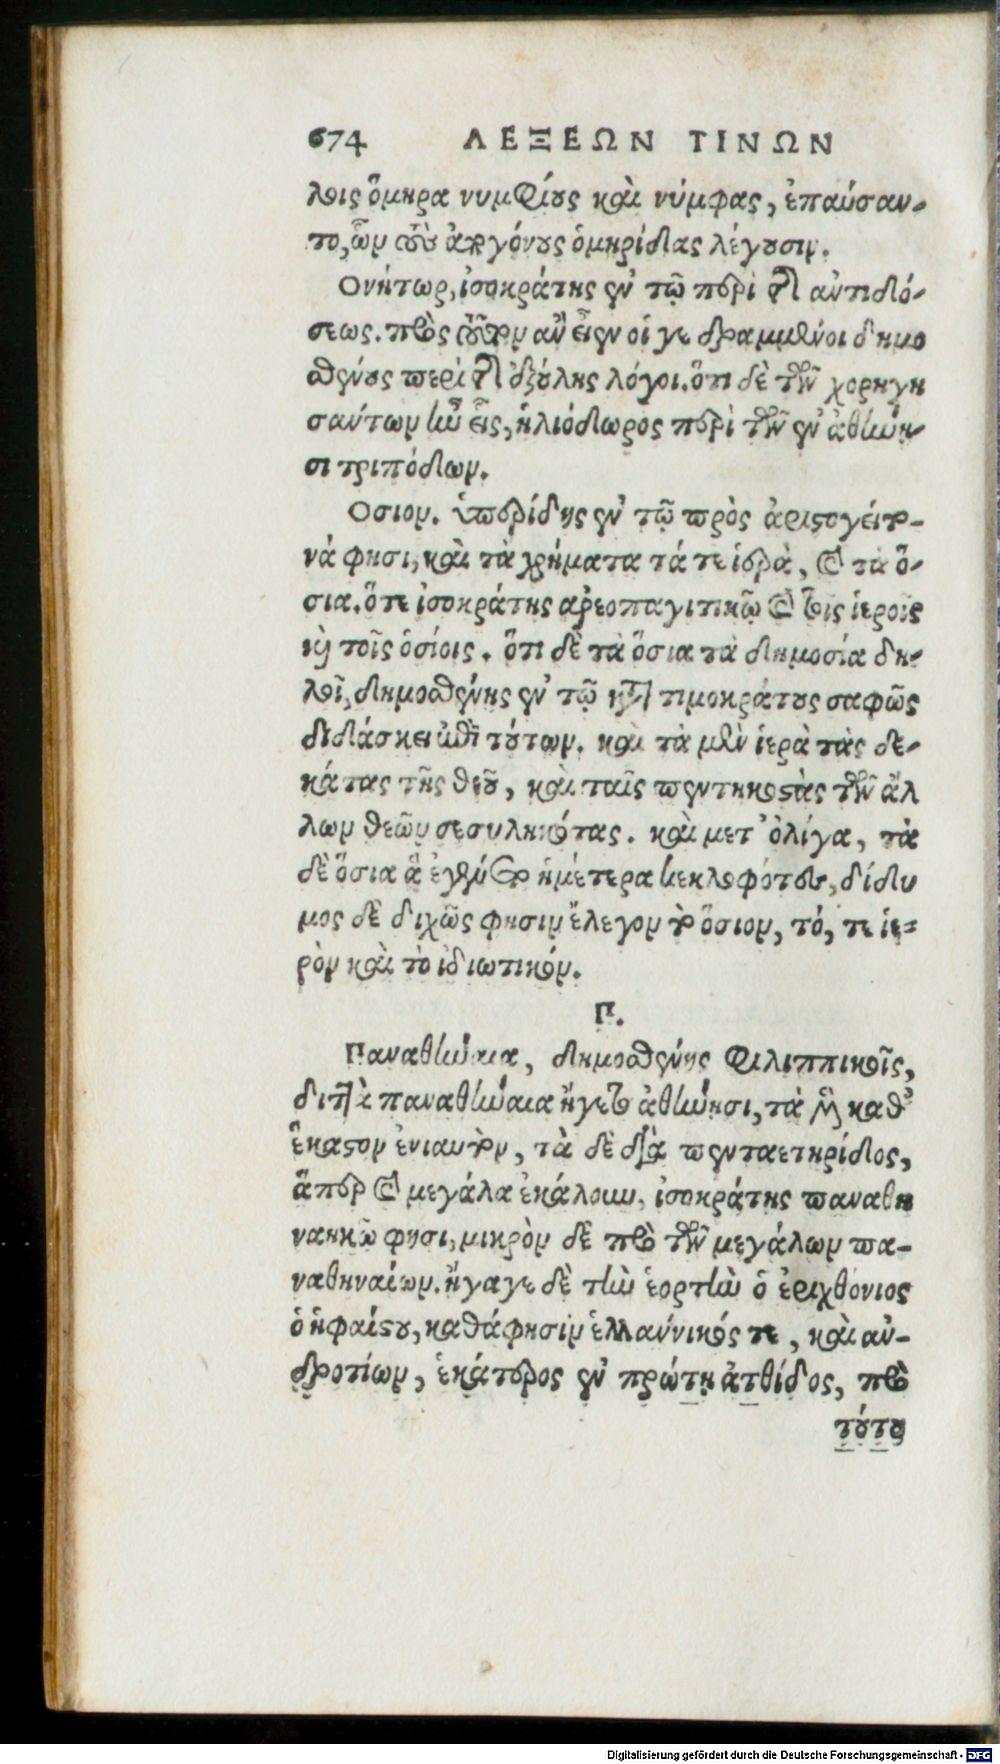 674 ΛΕΞΕΩΝ ΤΙΝΩΝ
λοις ὅμηρα νυμφίους καὶ νύμφας, ἐπαύσαν-
το, ὧν τοὺς ἀπογόνους ὁμηρίδας λέγουσιν.
Ονήτωρ, ἰσοκράτης ἐν τῷ περὶ τῆς ἀντιδό-
σεως. πρὸς τοῦτον ἂν εἶεν οἱ γεγραμμένοι δημο
σθένους περὶ τῆς ἐξούλης λόγοι. ὅτι δὲ τῶν χορηγη
σάντων ἦν εἷς, ἡλιόδωρος περὶ τῶν ἐν ἀθήνη-
σι τριπόδων.
Οσιον. ὑπερίδης ἐν τῷ πρὸς ἀριστογείτο-
νά φησι, καὶ τὰ χρήματα τά τε ἱερὰ, καὶ τὰ ὅ-
σια. ὅτε ἰσοκράτης ἀρεοπαγιτικῷ καὶ τοῖς ἱεροῖς
καὶ τοῖς ὁσίοις. ὅτι δὲ τὰ ὅσια τὰ δημοσία δη-
λοῖ, δημοσθένης ἐν τῷ κατὰ τιμοκράτους σαφῶς
διδάσκει ἐπὶ τούτων. καὶ τὰ μὲν ἱερὰ τὰς δε-
κάτας τῆς θεοῦ, καὶ ταῖς πεντηκοστὰς τῶν ἄλ
λων θεῶν σεσυληκότας. καὶ μετ' ὀλίγα, τὰ
δὲ ὅσια ἃ ἐγένετο ἡμέτερα κεκλοφότες, δίδυ
μος δὲ διχῶς φησιν ἔλεγον τὸ ὅσιον, τό, τε ἱε-
ρὸν καὶ τὸ ἰδιωτικόν.
Π.
Παναθήναια, δημοσθένης φιλιππικοῖς,
διττὰ παναθήναια ἤγετο ἀθήνησι, τὰ μὲν καθ'
ἕκαστον ἐνιαυτὸν, τὰ δὲ διὰ πενταετηρίδος,
ἅπερ καὶ μεγάλα ἐκάλουν, ἰσοκράτης παναθη
ναϊκῷ φησι, μικρὸν δὲ πρὸ τῶν μεγάλων πα-
ναθηναίων. ἤγαγε δὲ τὴν ἑορτὴν ὁ ἐριχθόνιος
ὁ ἡφαίστου, καθάφησὶν ἑλλαύνικός τε, καὶ ἀν-
δροτίων, ἑκάτερος ἐν πρώτη ἀτθίδος, πρὸ
τούτου
Digitalisierung gefördert durch die Deutsche Forschungsgemeinschaft - DFG